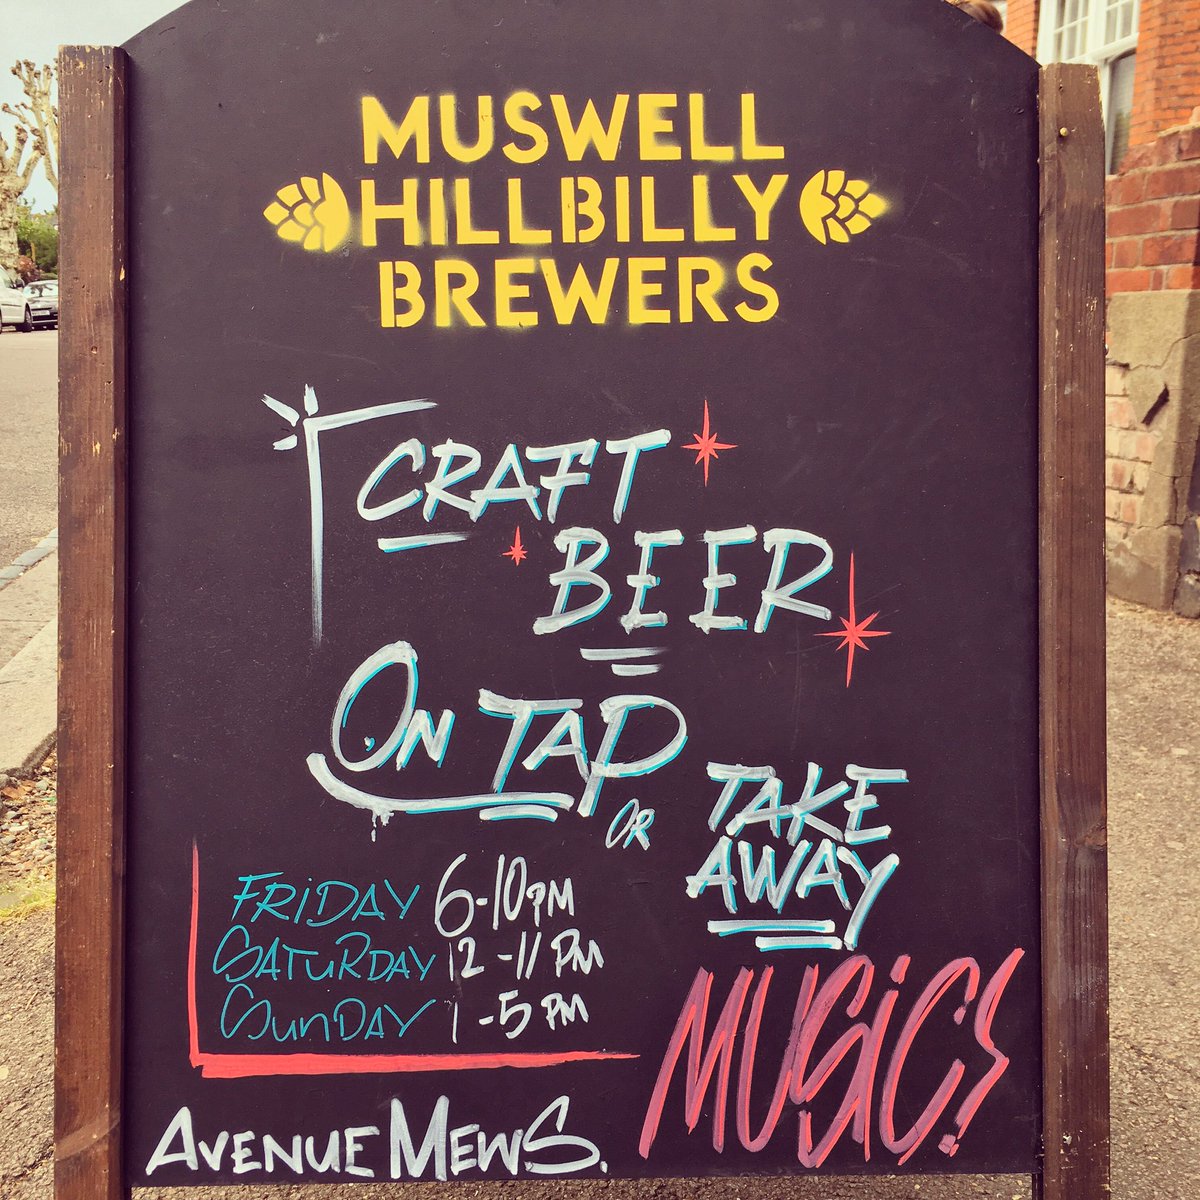 MUSWELL
HILLBILLY
BREWERS
CRAFT
BEER
ON TAP
OR
TAKE
AWAY
FRIDAY 6-10PM
SATURDAY 12-11PM
SUNDAY 1-5PM
MUSIC!
AVENUE MEWS.